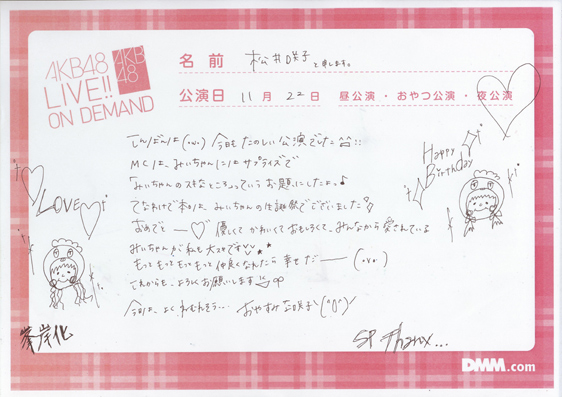 AKB48
LIVE!!
ON DEMAND
AKB
48
名前 松井咲子と申します。
公演日 11月22日 昼公演・おやつ公演・夜公演
こんばんは(・ω・) 今日もたのしい公演でした
MCは、みぃちゃんにはサプライズで
「みぃちゃんのスキなところ」っていうお題にしたよっ♪
てなわけで本日は みぃちゃんの生誕祭でございました
おめでとー♡ 優しくて かわいくて おもしろくて、みんなから愛されている
みぃちゃんが私も大スキです♡
もっともっともっともっと仲良くなれたら幸せだー(・ω・)
これからも、よろしくお願いします
今日は、よくねむれそう… おやすみな咲子\(^0^)/
LOVE
Happy
Birthday
峯岸化
SP Thanx...
DMM.com